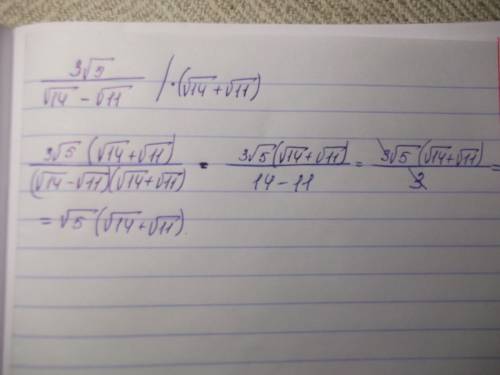 3√5 / (√14 - √11) / · (√14 + √11)
3√5 (√14 + √11) / (√14 - √11)(√14 + √11) = 3√5 (√14 + √11) / 14 - 11 = 3√5 (√14 + √11) / 3 =
= √5 (√14 + √11)